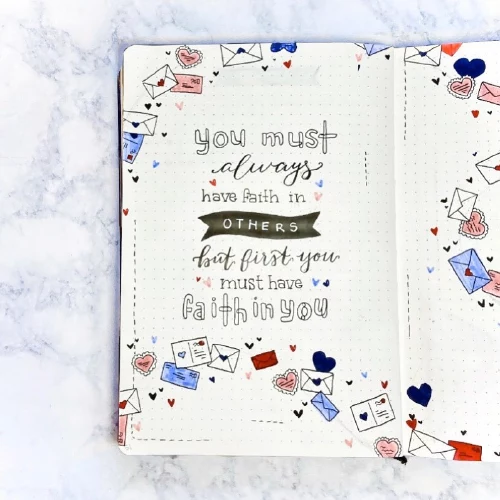 you must
always
have faith in
OTHERS
but first you
must have
faith in you